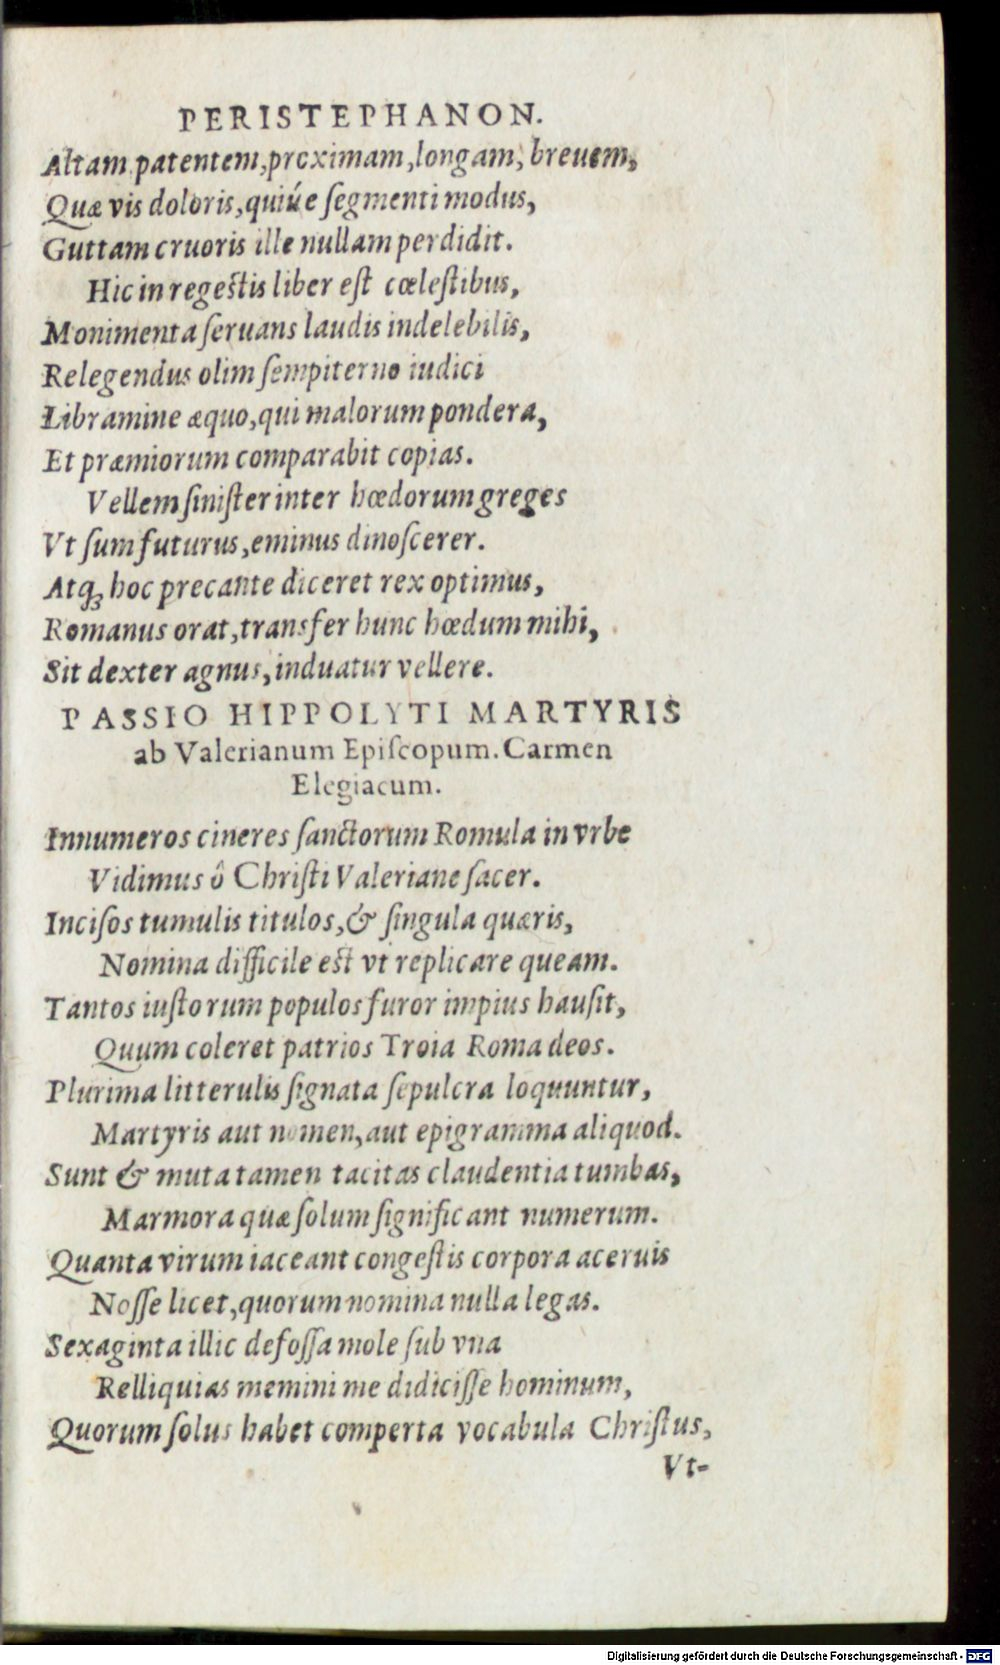 PERISTEPHANON.
Altam patentem, proximam, longam, breuem,
Quæ vis doloris, quiúe ſegmenti modus,
Guttam cruoris ille nullam perdidit.
Hic in regeſtis liber eſt cœleſtibus,
Monimenta ſeruans laudis indelebilis,
Relegendus olim ſempiterno iudici
Libramine æquo, qui malorum pondera,
Et præmiorum comparabit copias.
Vellem ſiniſter inter hœdorum greges
Vt ſum futurus, eminus dinoſcerer.
Atq; hoc precante diceret rex optimus,
Romanus orat, transfer hunc hœdum mihi,
Sit dexter agnus, induatur vellere.
PASSIO HIPPOLYTI MARTYRIS
ab Valerianum Epiſcopum. Carmen
Elegiacum.
Innumeros cineres ſanctorum Romula in vrbe
Vidimus ô Chriſti Valeriane ſacer.
Inciſos tumulis titulos, & ſingula quæris,
Nomina difficile eſt vt replicare queam.
Tantos iuſtorum populos furor impius hauſit,
Quum coleret patrios Troia Roma deos.
Plurima litterulis ſignata ſepulcra loquuntur,
Martyris aut nomen, aut epigramma aliquod.
Sunt & muta tamen tacitas claudentia tumbas,
Marmora quæ ſolum ſignificant numerum.
Quanta virum iaceant congeſtis corpora aceruis
Noſſe licet, quorum nomina nulla legas.
Sexaginta illic defoſſa mole ſub vna
Relliquias memini me didiciſſe hominum,
Quorum ſolus habet comperta vocabula Chriſtus,
Vt-
Digitalisierung gefördert durch die Deutsche Forschungsgemeinschaft - DFG